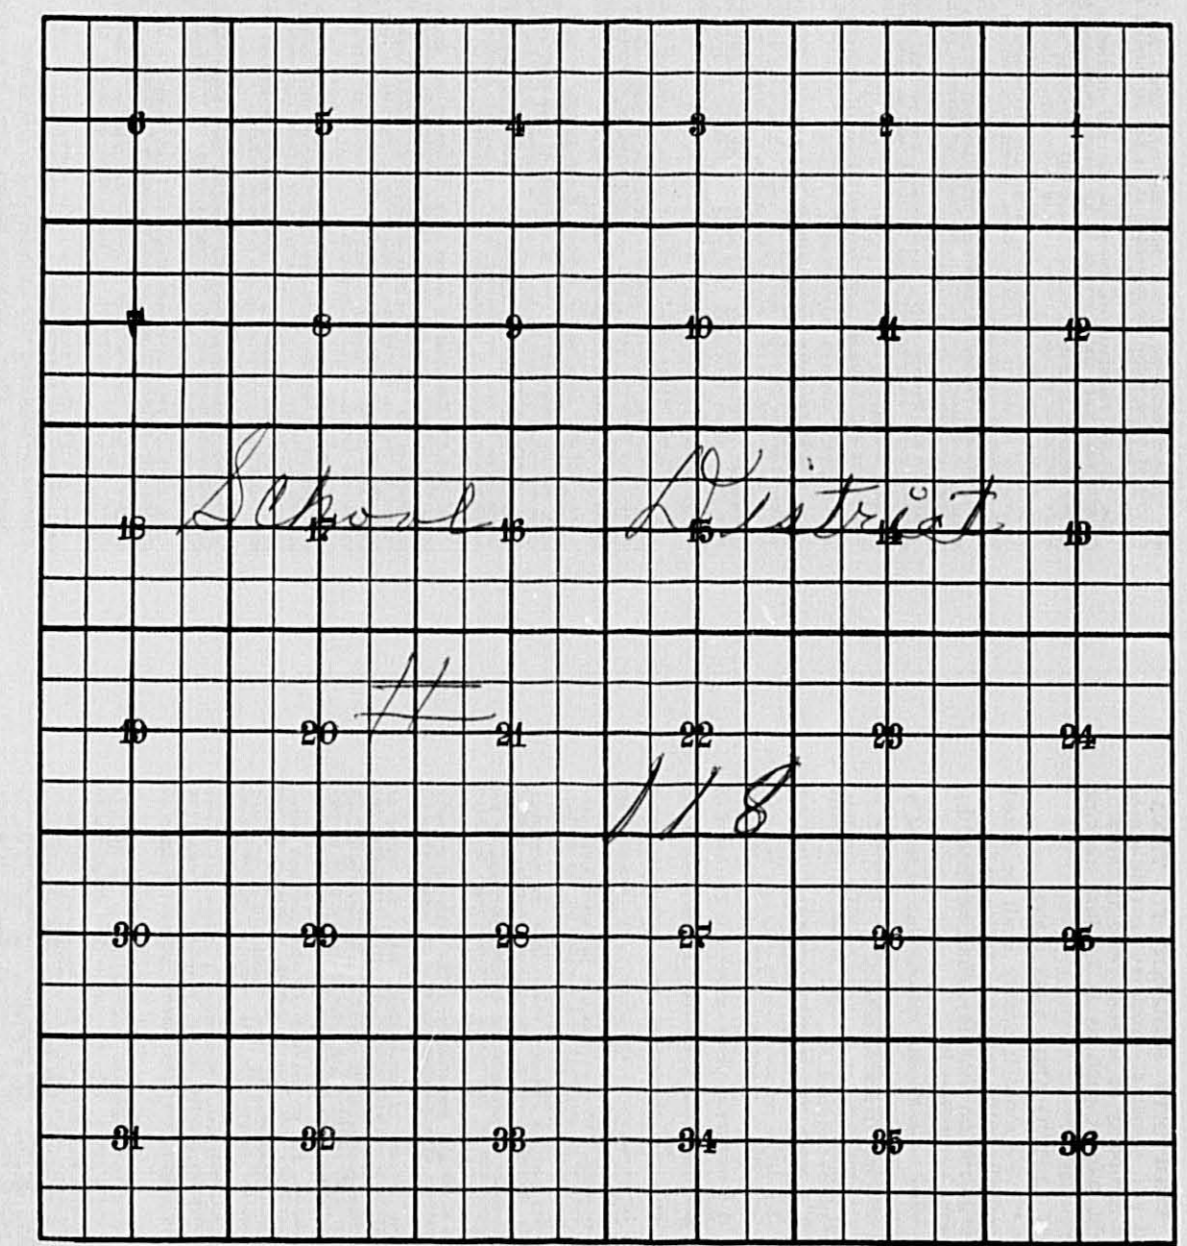 6 5 4 3 2 1
7 8 9 10 11 12
School District
18 17 16 15 14 13
#
19 20 21 22 23 24
118
30 29 28 27 26 25
31 32 33 34 35 36